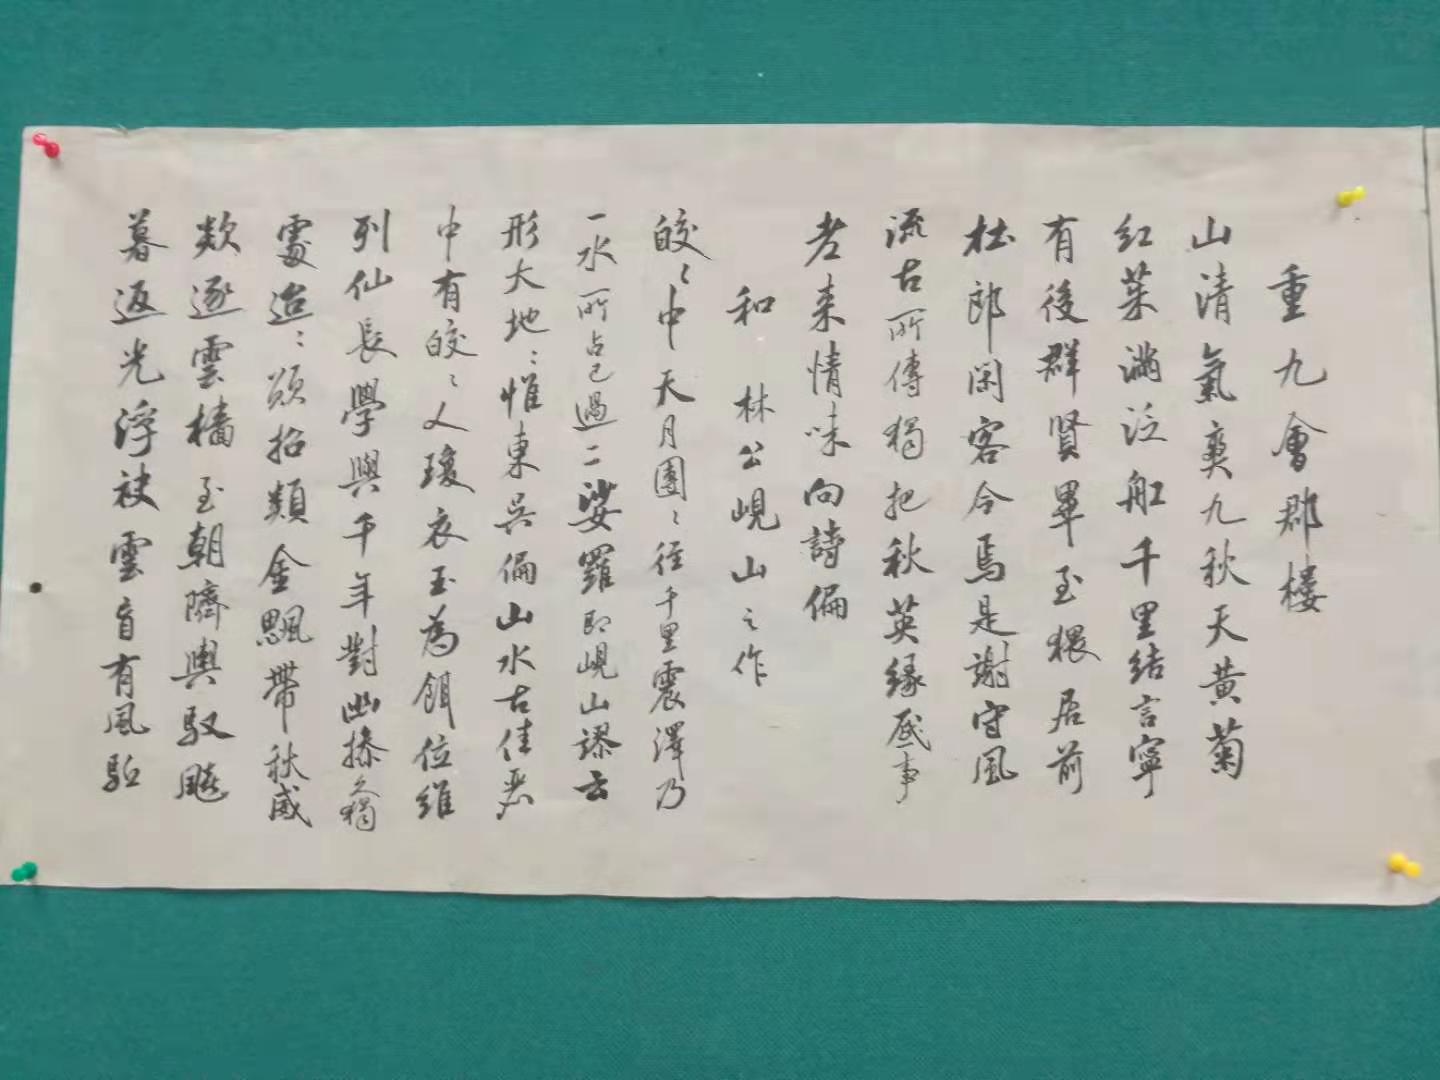 重九會郡樓
山清氣爽九秋天黃菊
紅茱滿泛船千里結言寧
有後群賢畢至猥居前
杜郎閑客今焉是謝守風
流古所傳獨把秋英緣底事
老來情味向詩偏
和林公峴山之作
皎〻中天月團〻徑千里震澤乃
一水所占已過二娑羅即峴山謬云
形大地〻惟東吳偏山水古佳麗
中有皎〻人瓊衣玉為餌位維
列仙長學與千年對幽操久獨
處迢〻願招類金飈帶秋威
欻逐雲檣至朝隮輿馭飈
暮返光浮袂雲盲有風駈